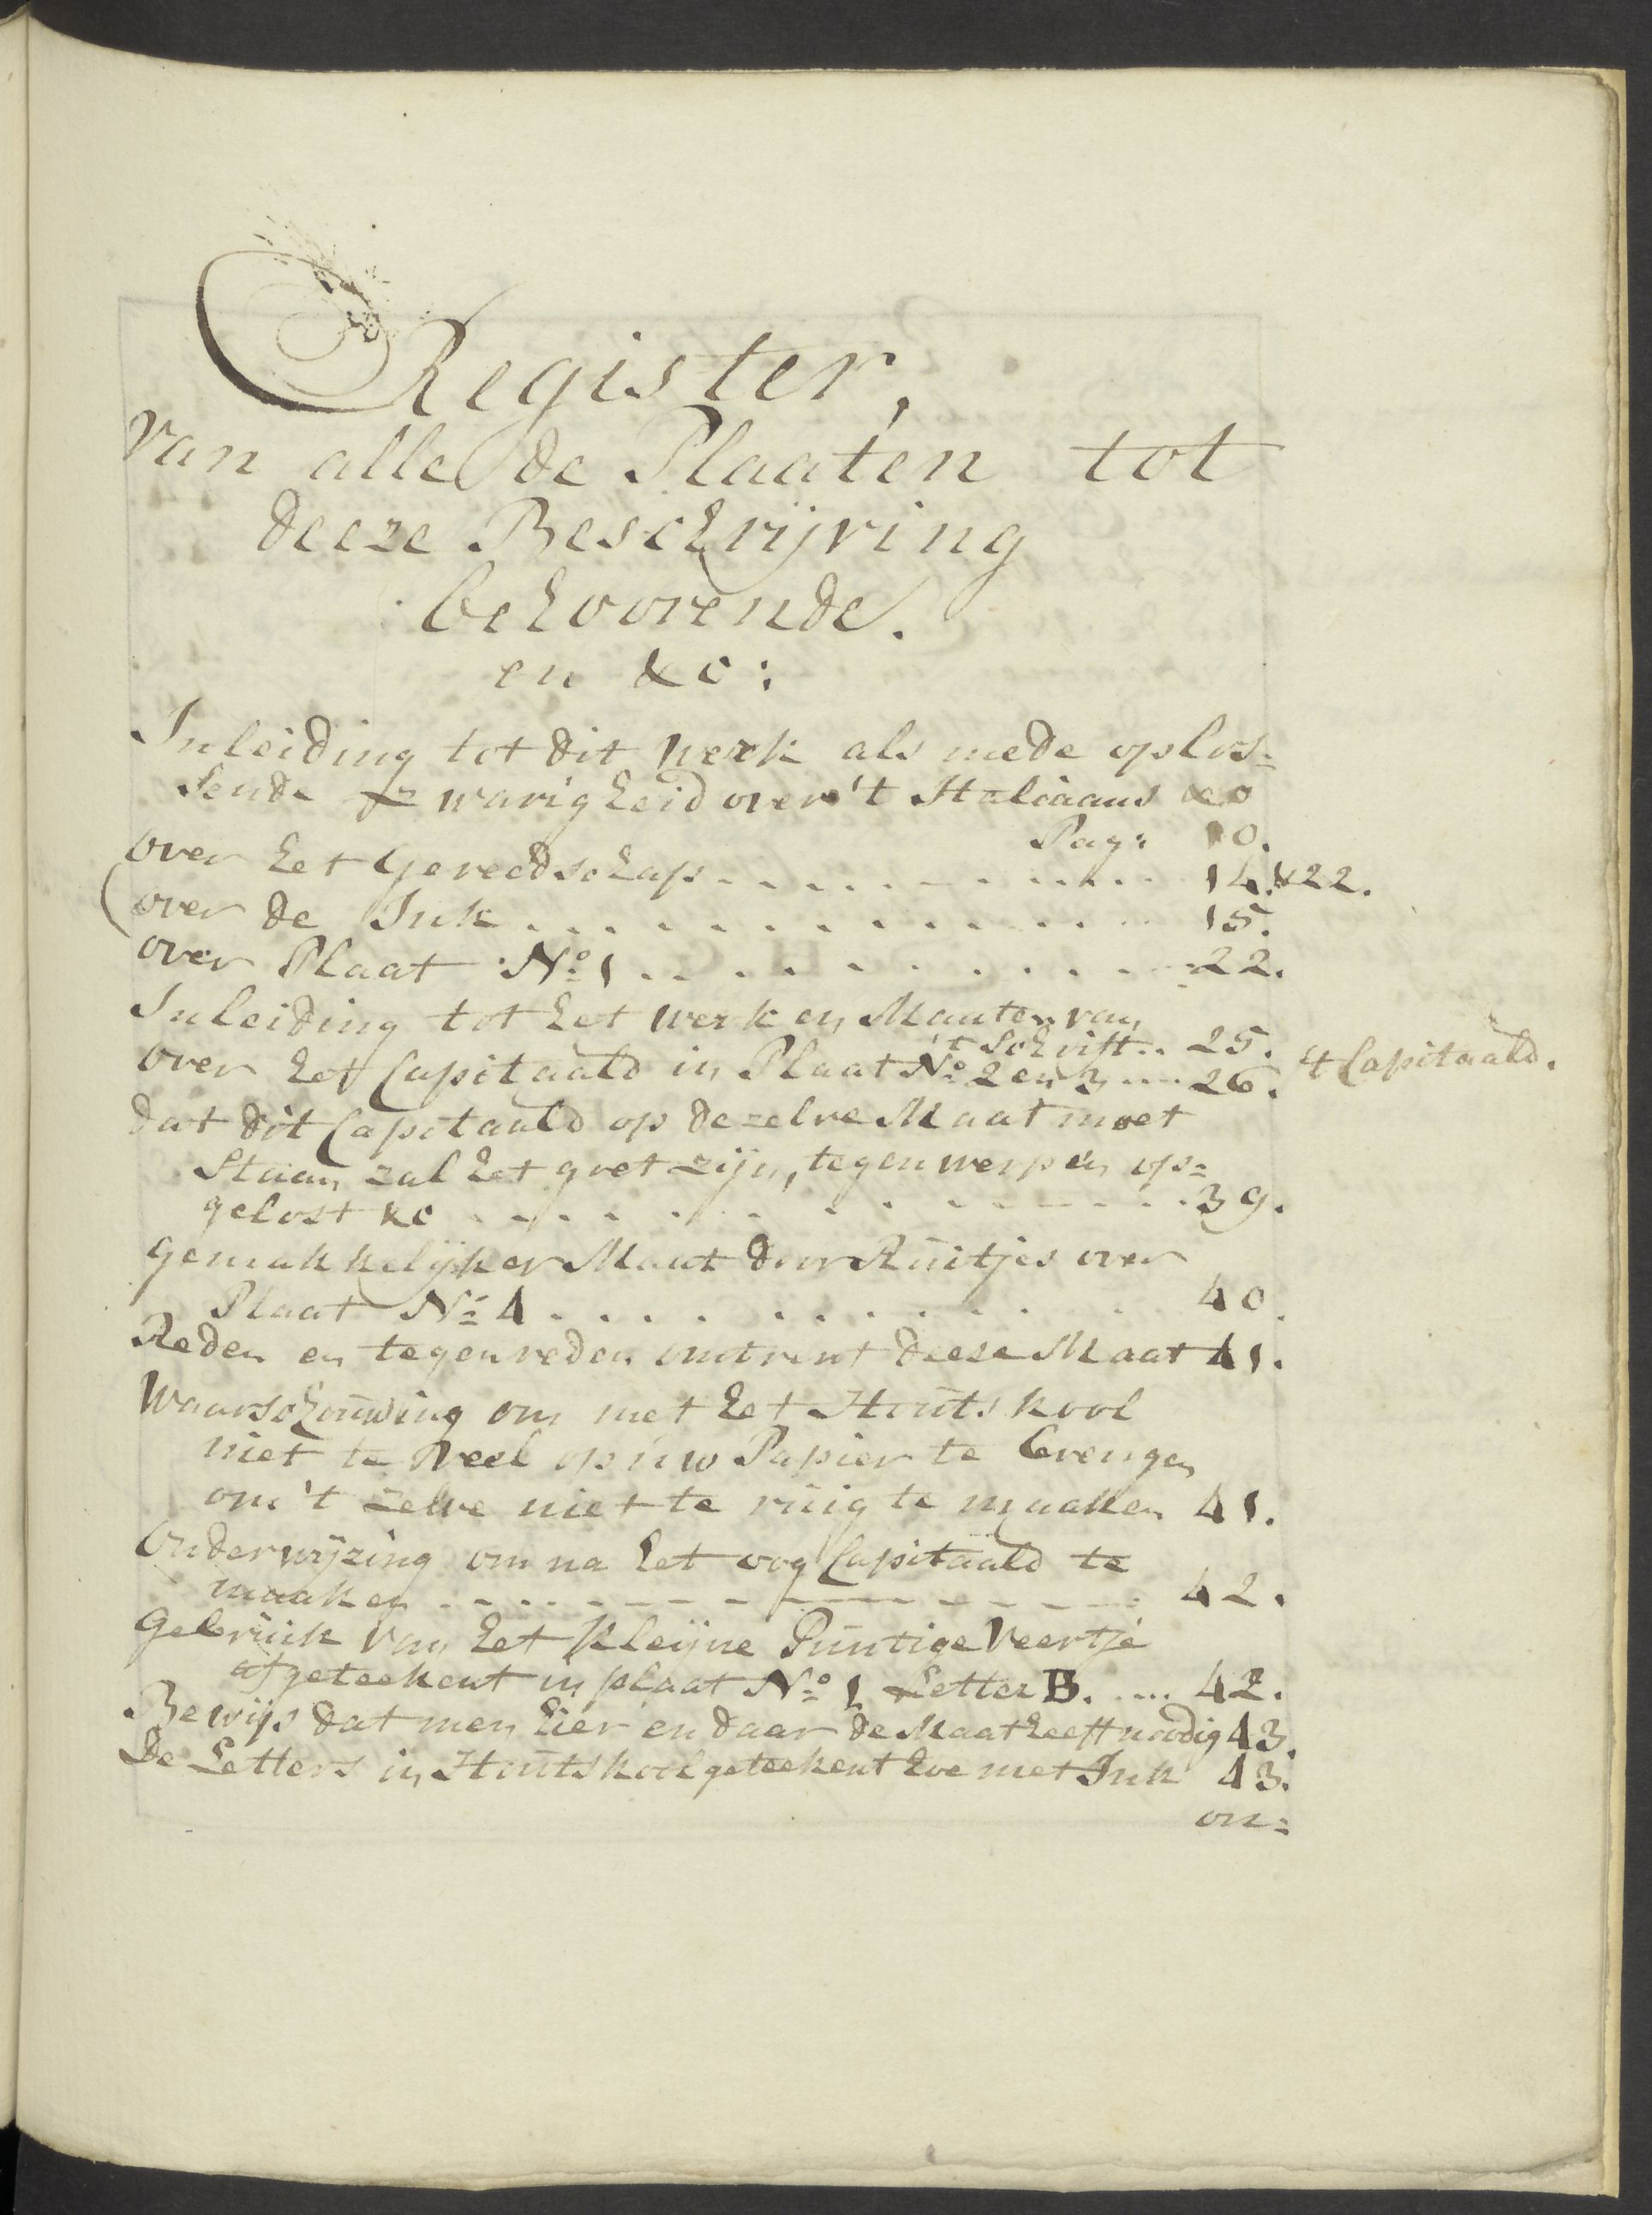 Register,
van alle de Plaaten tot
deeze Beschrijving
behoorende.
en &c:
Inleiding tot dit werk als mede oplos=
sende zwarigheid over 't Italiaans &c
Pag: 10.
over het Gereedschap 14. & 22.
over de Ink 15.
over Plaat N:o 1 22.
Inleiding tot het werk en Maaten van
't Schrift.. 25.
over het Capitaald in Plaat N:o 2 en 3 .... 26. 't Capitaald.
dat dit Capitaald op dezelve Maat moet
Staan zal het goet zijn, tegenwerpen op=
gelost &c 39.
Gemakkelijker Maat door Ruitjes over
Plaat N:o 4 40.
Reden en tegenreden omtrent deese Maat 41.
Waarschouwing om met het Houtskool
niet te veel op uw Papier te brengen
om 't zelve niet te ruig te maaken 41.
Onderwijzing om na het oog Capitaald te
maaken 42.
Gebruik van het kleijne Puntige Veertje
afgeteekent in plaat N:o 1 Letter B. .... 42.
Bewijs dat men hier en daar de Maat heeft noodig 43.
De Letters in Houtskool geteekent hoe met Ink 43.
on=